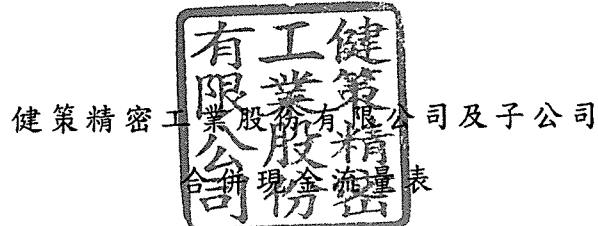 健策精密工業股份有限公司
健策精密工業股份有限公司及子公司
合併現金流量表